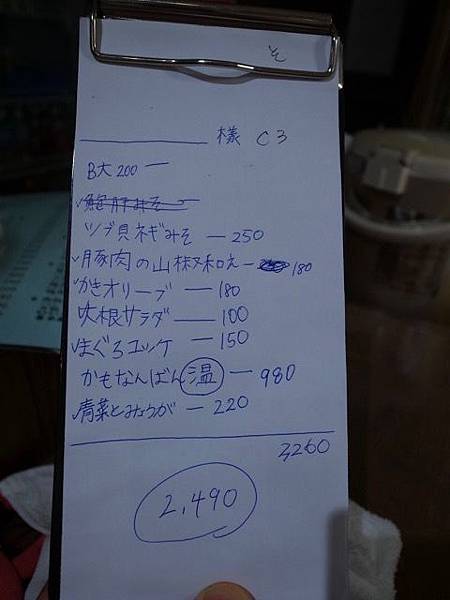 そ
様 C3
B大 200 ー
ツブ貝ネギみそ ー 250
豚肉の山椒和え ー 180
かきオリーブ ー 180
大根サラダ ー 100
まぐろユッケ ー 150
かもなんばん 温 ー 980
青菜とみょうが ー 220
3260
2,490